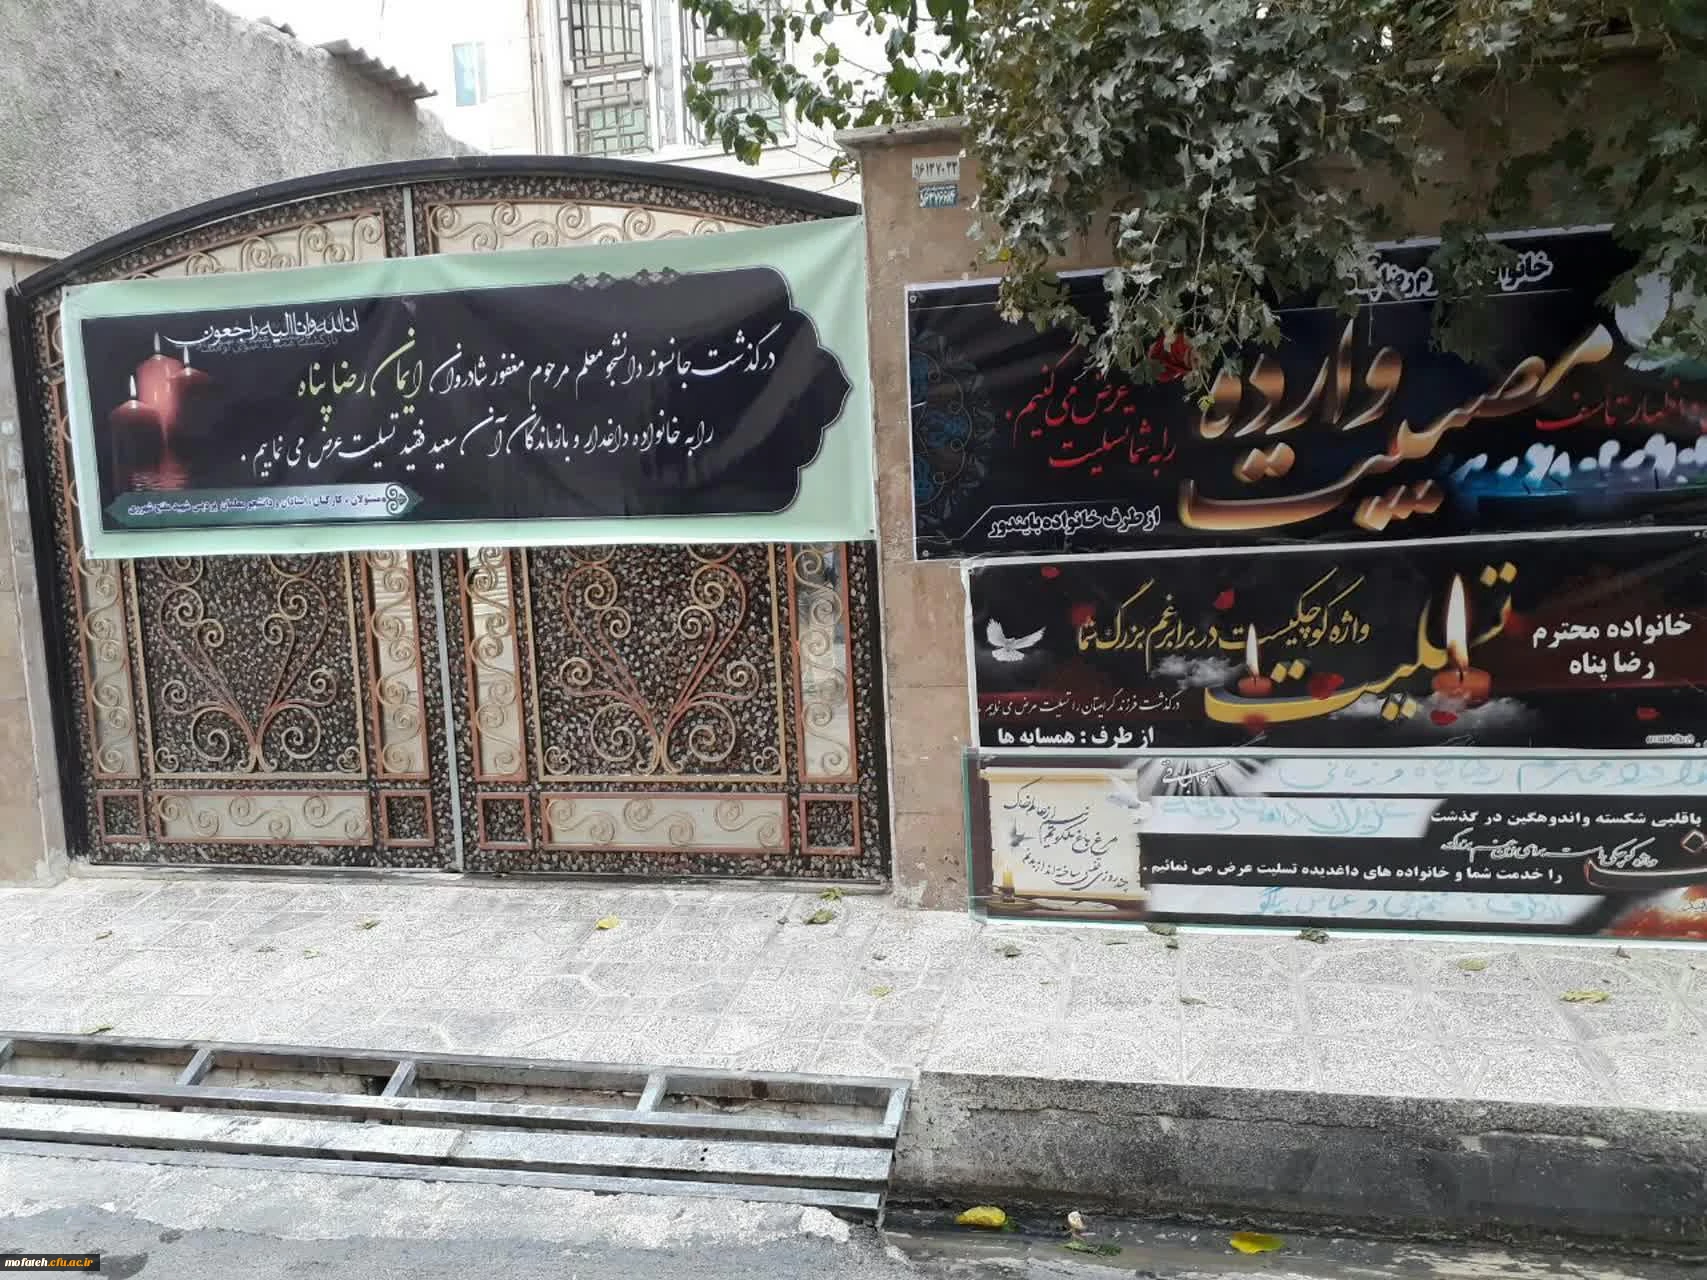 اناللەواناالیەراجعون
درگذشت جانسوز دانشجو معلم مرحوم مغفور شادروان ایمان رضا پناه
را به خانواده داغدار و بازماندگان آن سعید فقید تسلیت عرض می نماییم .
مسئولان ، کارکنان ، استادان و دانشجو معلمان پردیس شهید مفتح شهرری
۹۶۱۳۷۰۳۳
مصیبت وارده
اظهار تاسف
را به شما تسلیت عرض می کنیم .
از طرف خانواده بایندور
خانواده محترم
رضا پناه
تسلیت
واژه کوچکیست در برابر غم بزرگ شما
درگذشت فرزند گرامیتان را تسلیت عرض می نماییم .
از طرف : همسایه ها
هوالباقی
باقلبی شکسته واندوهگین در گذشت
را خدمت شما و خانواده های داغدیده تسلیت عرض می نمائیم .
مرغ باغ ملکوتم نیم از عالم خاک
چند روزی قفسی ساخته اند از بدنم
mofateh.cfu.ac.ir